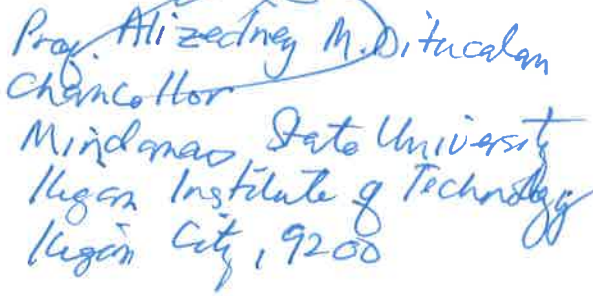 Prof. Alizedney M. Ditucalan
Chancellor
Mindanao State University
Iligan Institute of Technology
Iligan City, 9200